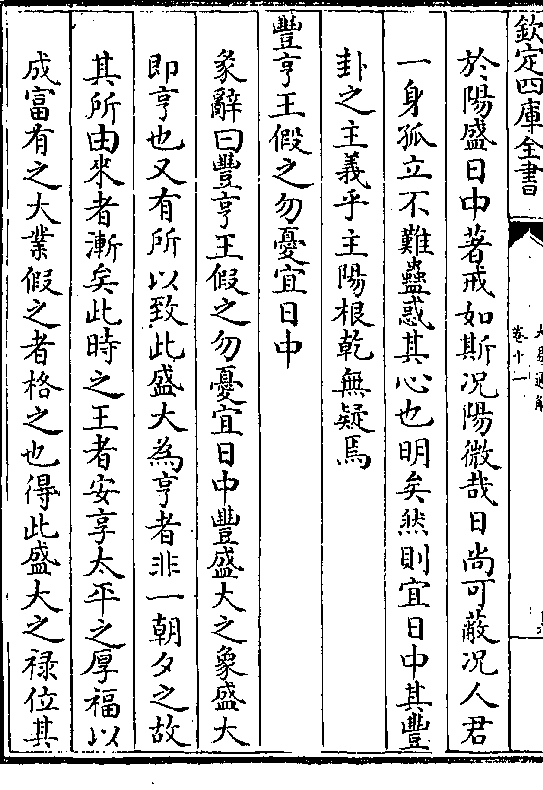 欽定四庫全書
卷十一
於陽盛日中著戒如斯况陽微哉日尚可蔽况人君
一身孤立不難蠱惑其心也明矣然則宜日中其豐
卦之主義乎主陽根乾無疑焉
豐亨王假之勿憂宜日中
彖辭曰豐亨王假之勿憂宜日中豐盛大之象盛大
即亨也又有所以致此盛大為亨者非一朝夕之故
其所由來者漸矣此時之王者安享太平之厚福以
成富有之大業假之者格之也得此盛大之禄位其